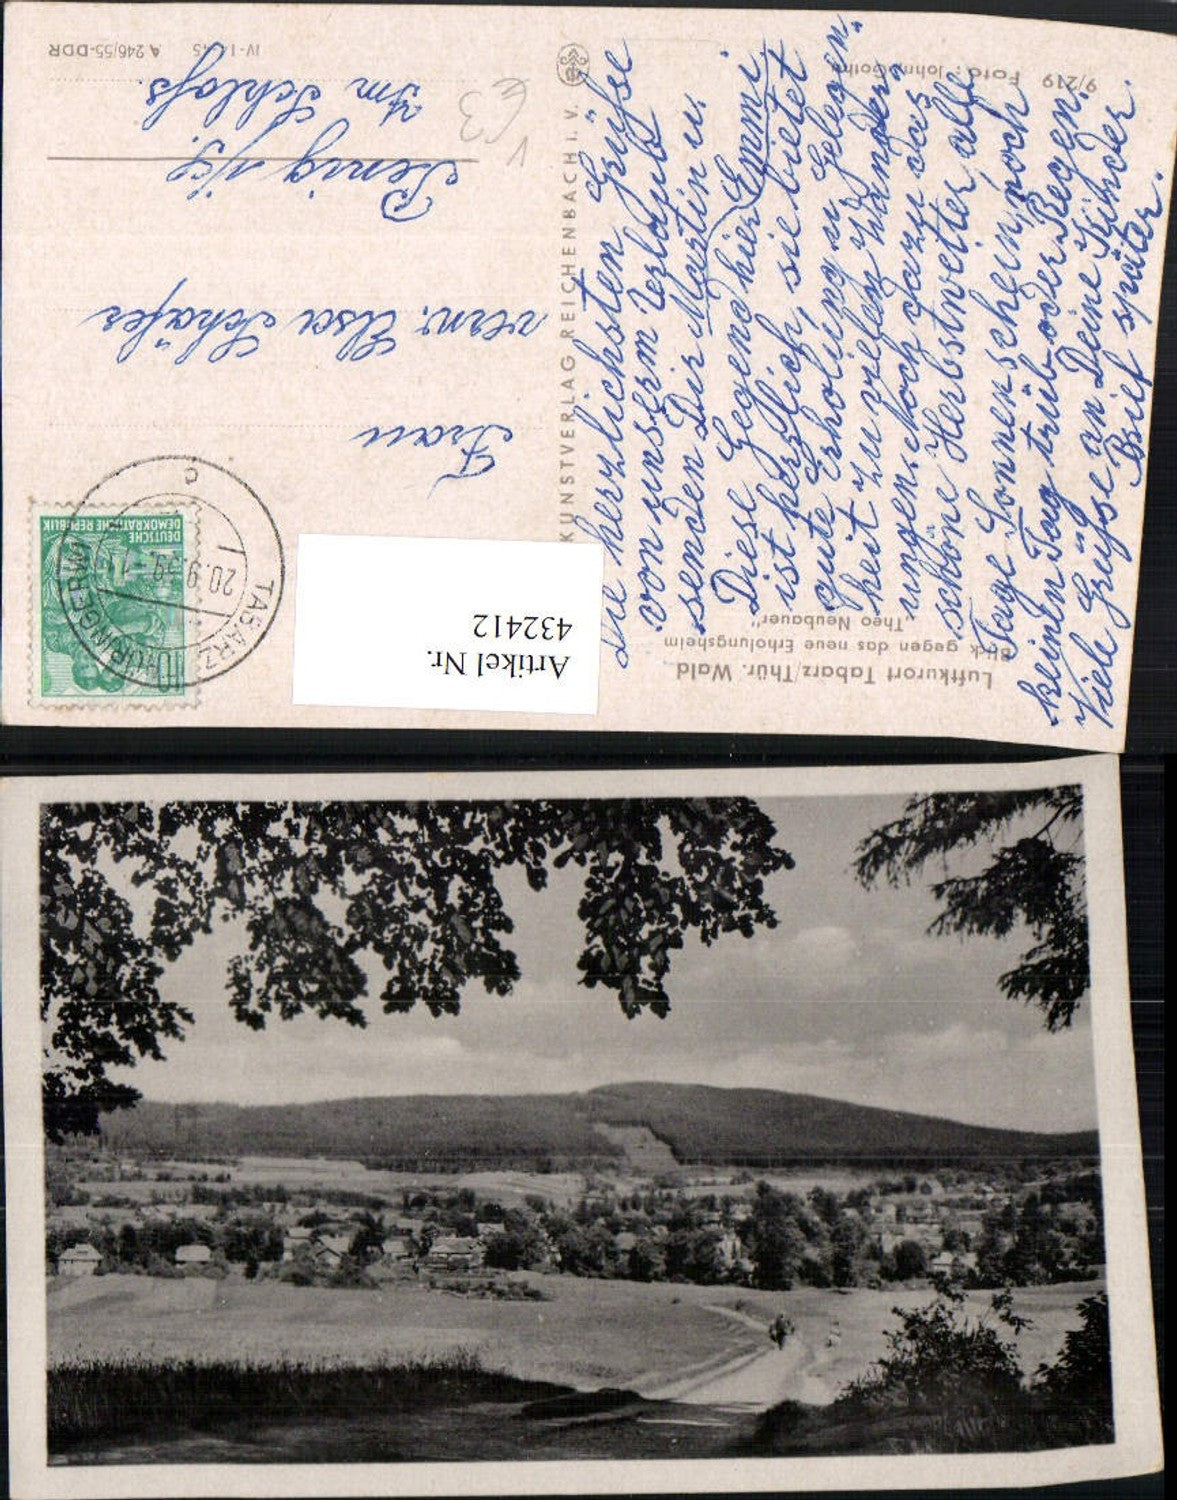 Luftkurort Tabarz/Thür. Wald
Blick gegen das neue Erholungsheim
„Theo Neubauer"
Die herzlichsten Grüße
von unserm Urlaub
senden Dir Martin u.
Emmi.
Diese Gegend hier
ist herrlich, sie bietet
gute Erholung u. Gelegen-
heit zu vielen Wander-
ungen. Noch dazu das
schöne Herbstwetter, alle
Tage Sonnenschein, noch
keinen Tag trüb oder Regen.
Viele Grüße an Deine Kinder.
Brief später.
9/219 Foto: John, Gotha
KUNSTVERLAG REICHENBACH I. V.
DEUTSCHE
DEMOKRATISCHE REPUBLIK
10
TABARZ
(THÜRINGERW)
20.9.59
c
Frau
verw. Elsa Schäfer
Penig i/S.
Im Schloß.
IV-14-45 A 246/55-DDR
V
€3
Artikel Nr.
432412